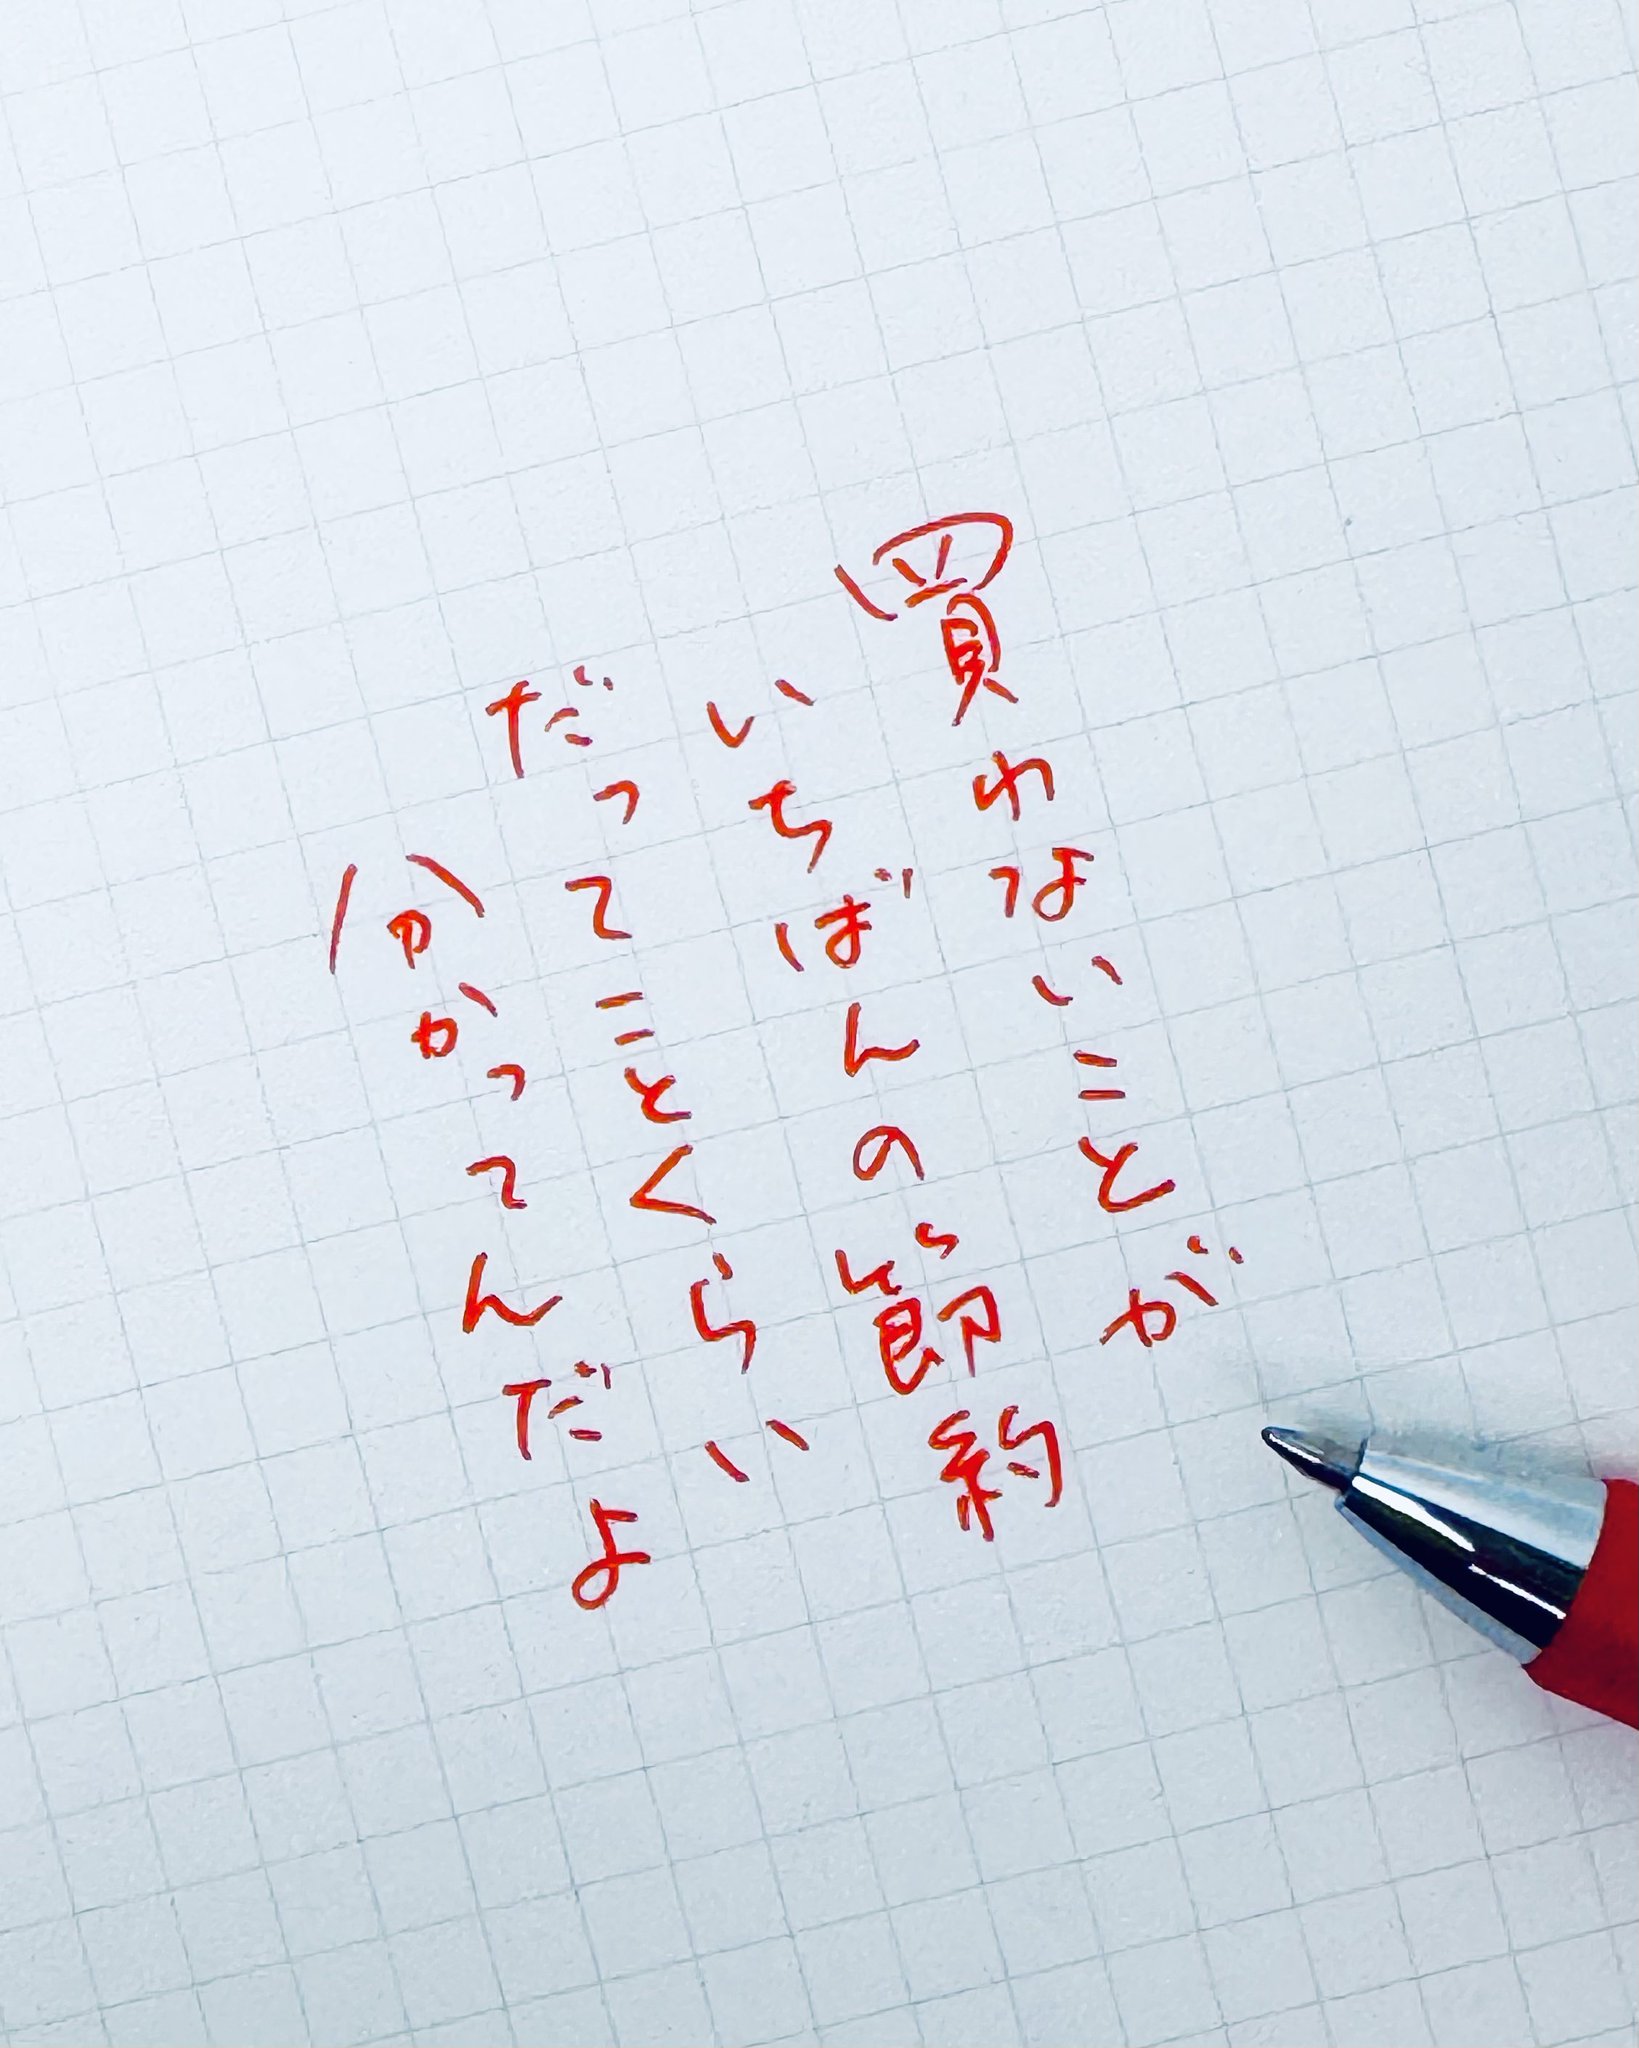 買わないことが
いちばんの節約
だってことくらい
分かってんだよ